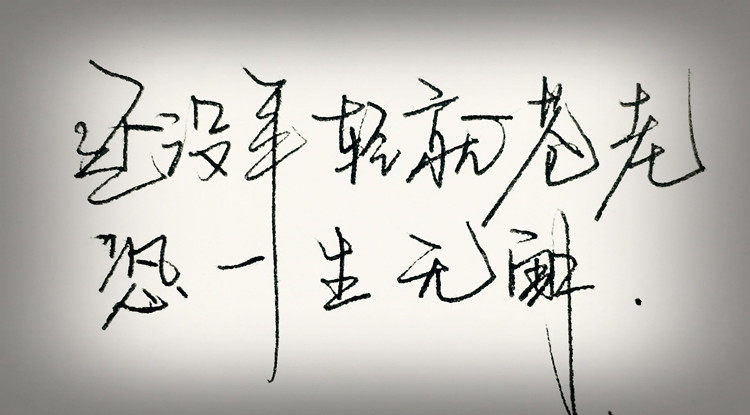 还没年轻就苍老
恐一生无解.